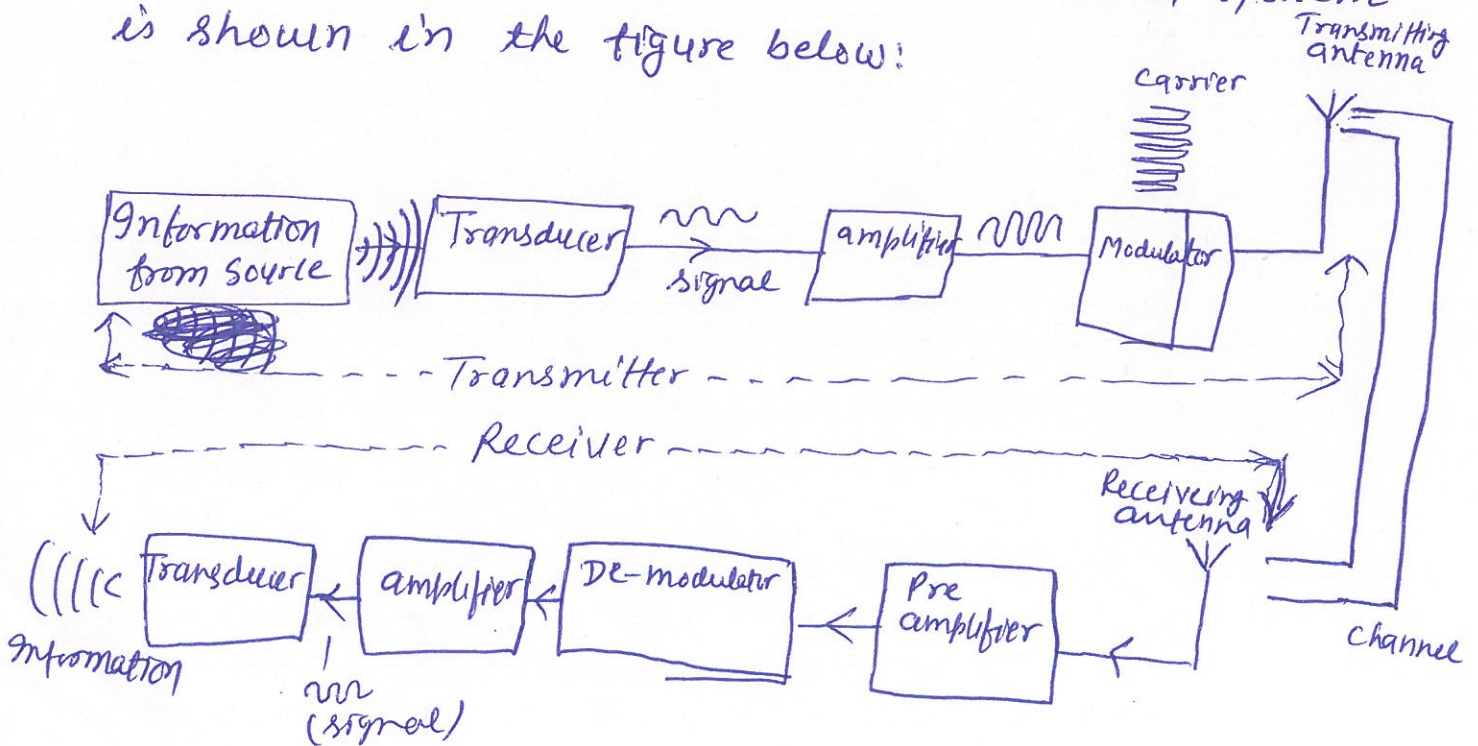 is shown in the figure below:
Transmitting
antenna
Carrier
Information
from Source
Transducer
signal
amplifier
Modulator
Transmitter
Receiver
Receivering
antenna
Transducer
amplifier
De-modulator
Pre
amplifier
Channel
Information
(signal)